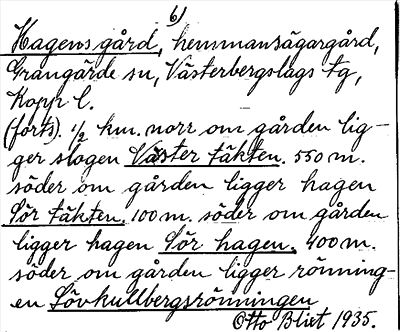 6)
Hagens gård, hemmansägargård,
Grangärde sn, Västerbergslags tg,
Kopp l.
(forts). 1/2 km. norr om gården lig-
ger slogen Väster täkten. 550 m.
söder om gården ligger hagen
Sör täkten. 100 m. söder om gården
ligger hagen Sör hagen. 400 m.
söder om gården ligger rönning-
en Lövkullbergsrönningen
Otto Blixt 1935.